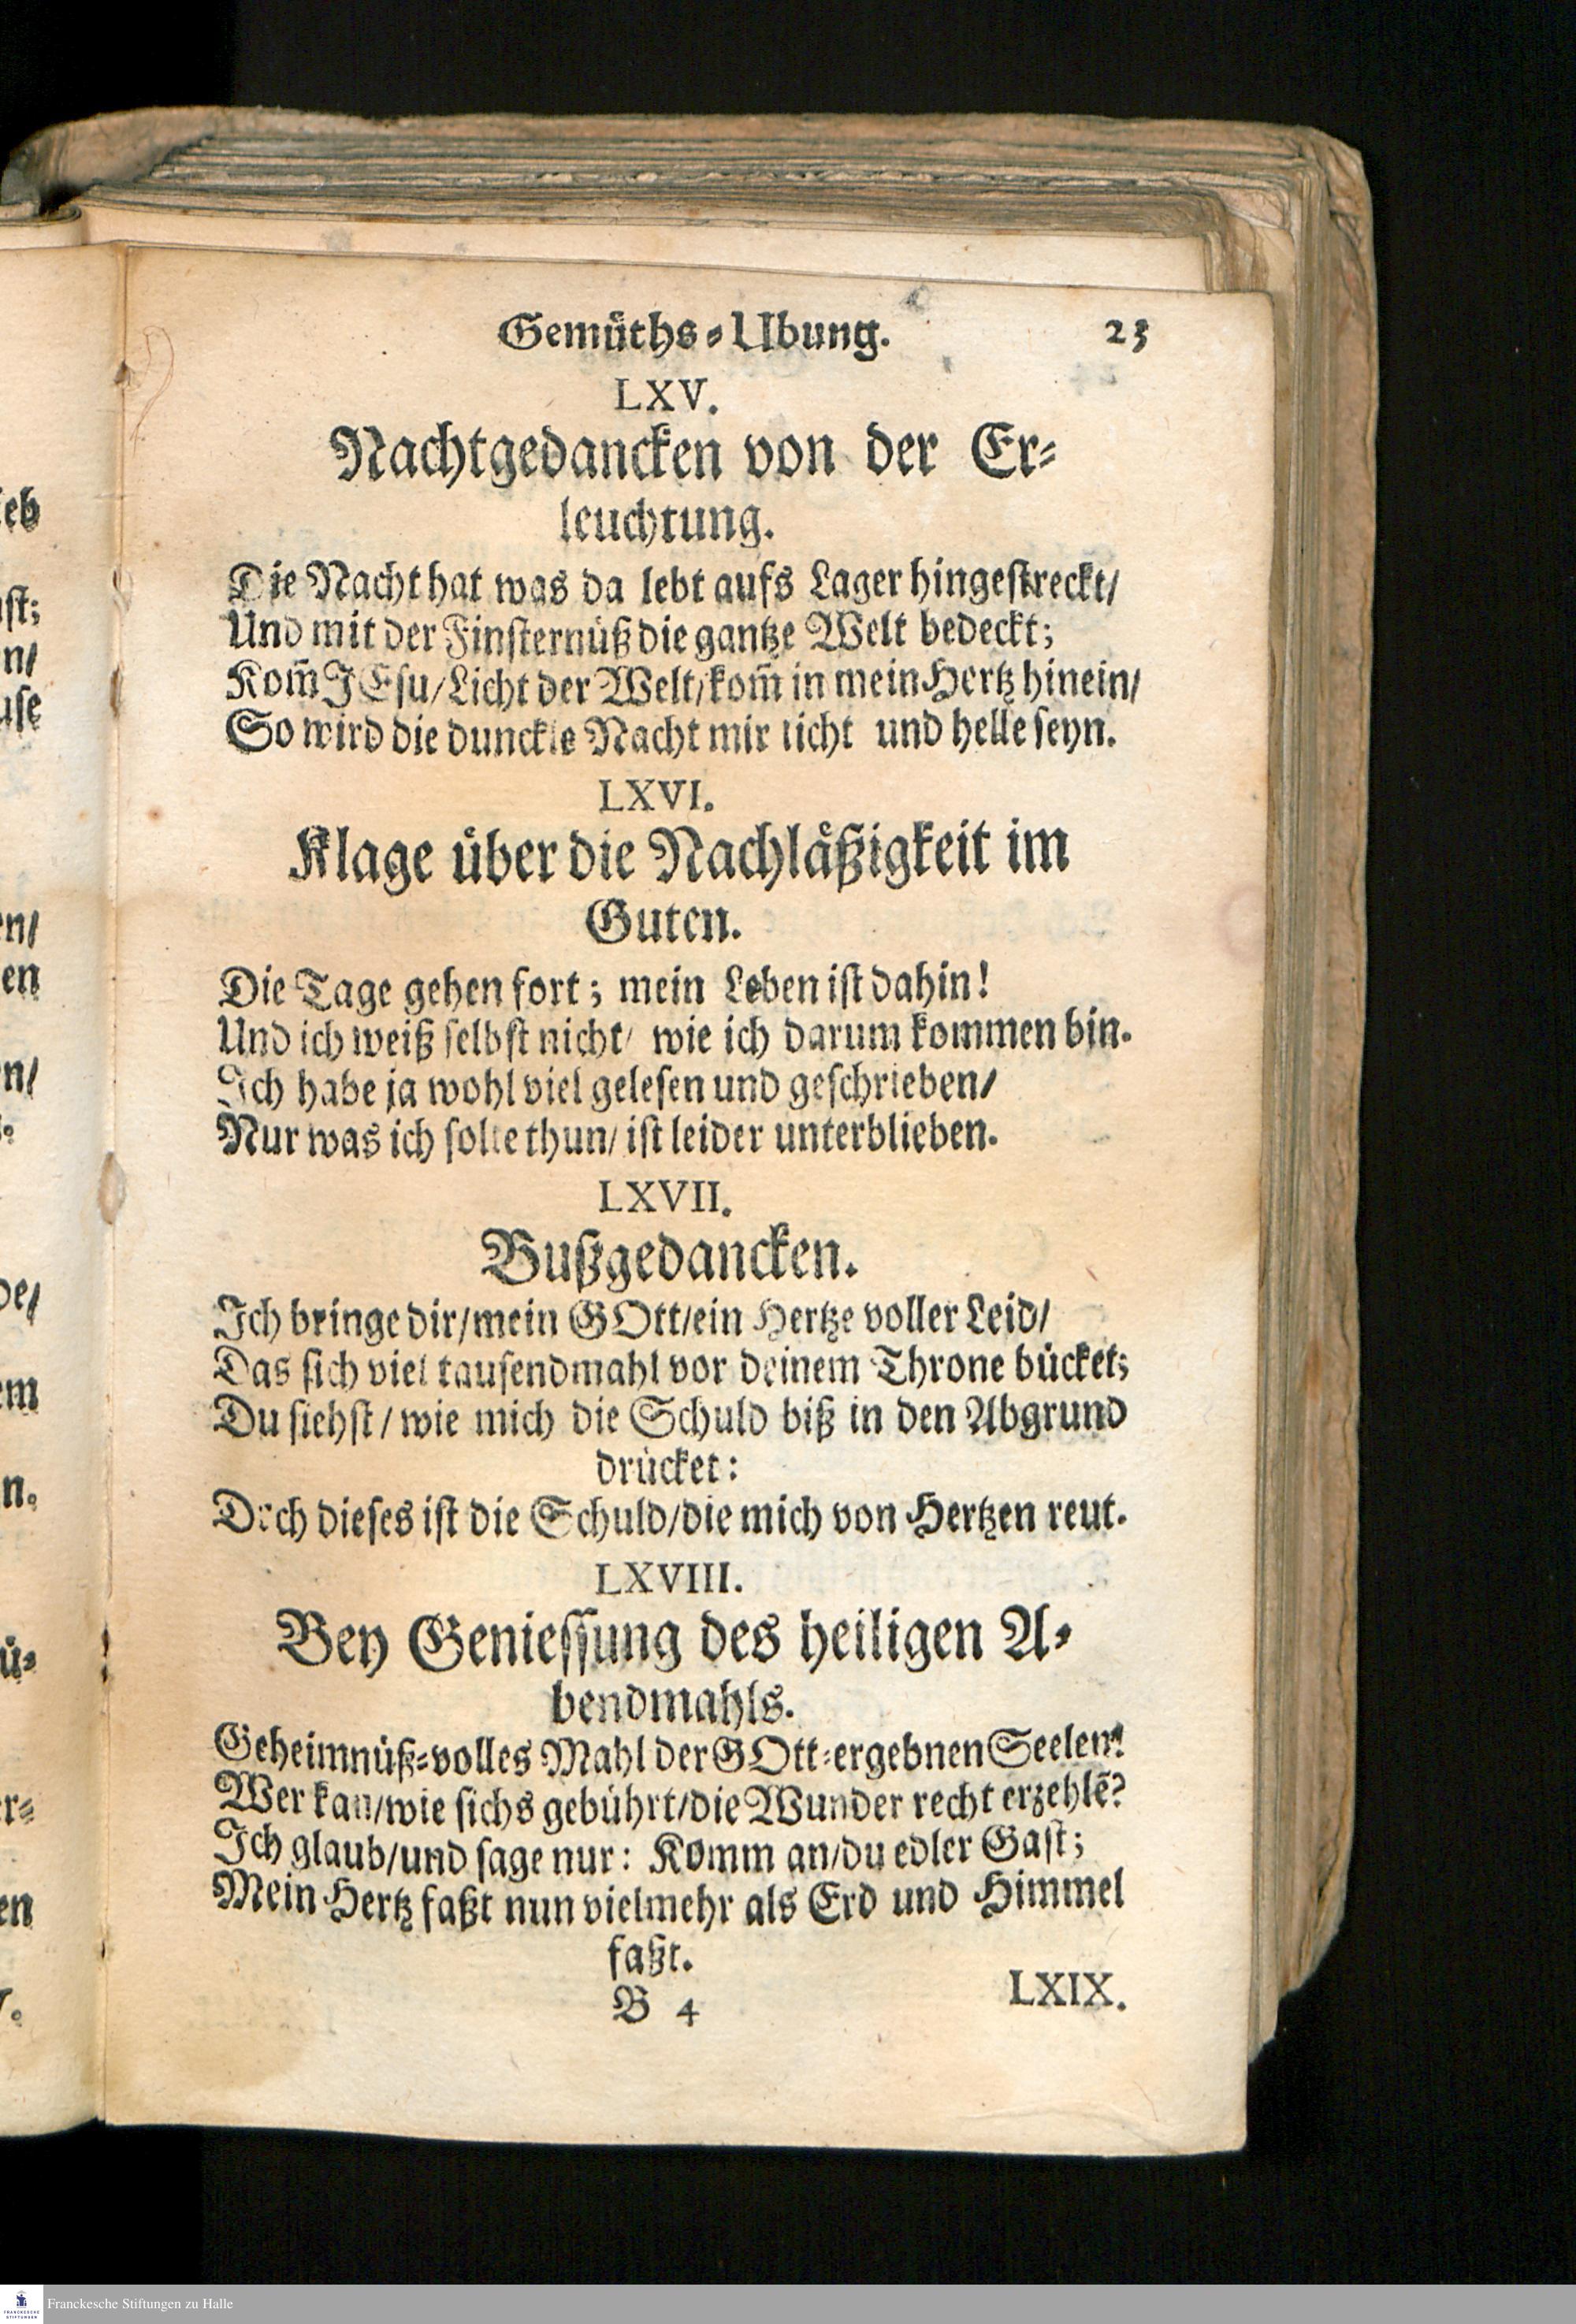 Gemüths-Ubung. 23
LXV.
Nachtgedancken von der Er-
leuchtung.
Die Nacht hat was da lebt aufs Lager hingestreckt/
Und mit der Finsternüß die gantze Welt bedeckt;
Kom̃ JEsu/Licht der Welt/kom̃ in mein Hertz hinein/
So wird die dunckle Nacht mir licht und helle seyn.
LXVI.
Klage über die Nachläßigkeit im
Guten.
Die Tage gehen fort; mein Leben ist dahin!
Und ich weiß selbst nicht/ wie ich darum kommen bin.
Ich habe ja wohl viel gelesen und geschrieben/
Nur was ich solte thun/ ist leider unterblieben.
LXVII.
Bußgedancken.
Ich bringe dir/mein GOtt/ein Hertze voller Leid/
Das sich viel tausendmahl vor deinem Throne bücket;
Du siehst/ wie mich die Schuld biß in den Abgrund
drücket:
Doch dieses ist die Schuld/die mich von Hertzen reut.
LXVIII.
Bey Geniessung des heiligen A-
bendmahls.
Geheimnüß-volles Mahl der GOtt-ergebnen Seelen!
Wer kan/wie sichs gebührt/die Wunder recht erzehlẽ?
Ich glaub/und sage nur: Komm an/du edler Gast;
Mein Hertz faßt nun vielmehr als Erd und Himmel
faßt.
B 4 LXIX.
Franckesche Stiftungen zu Halle